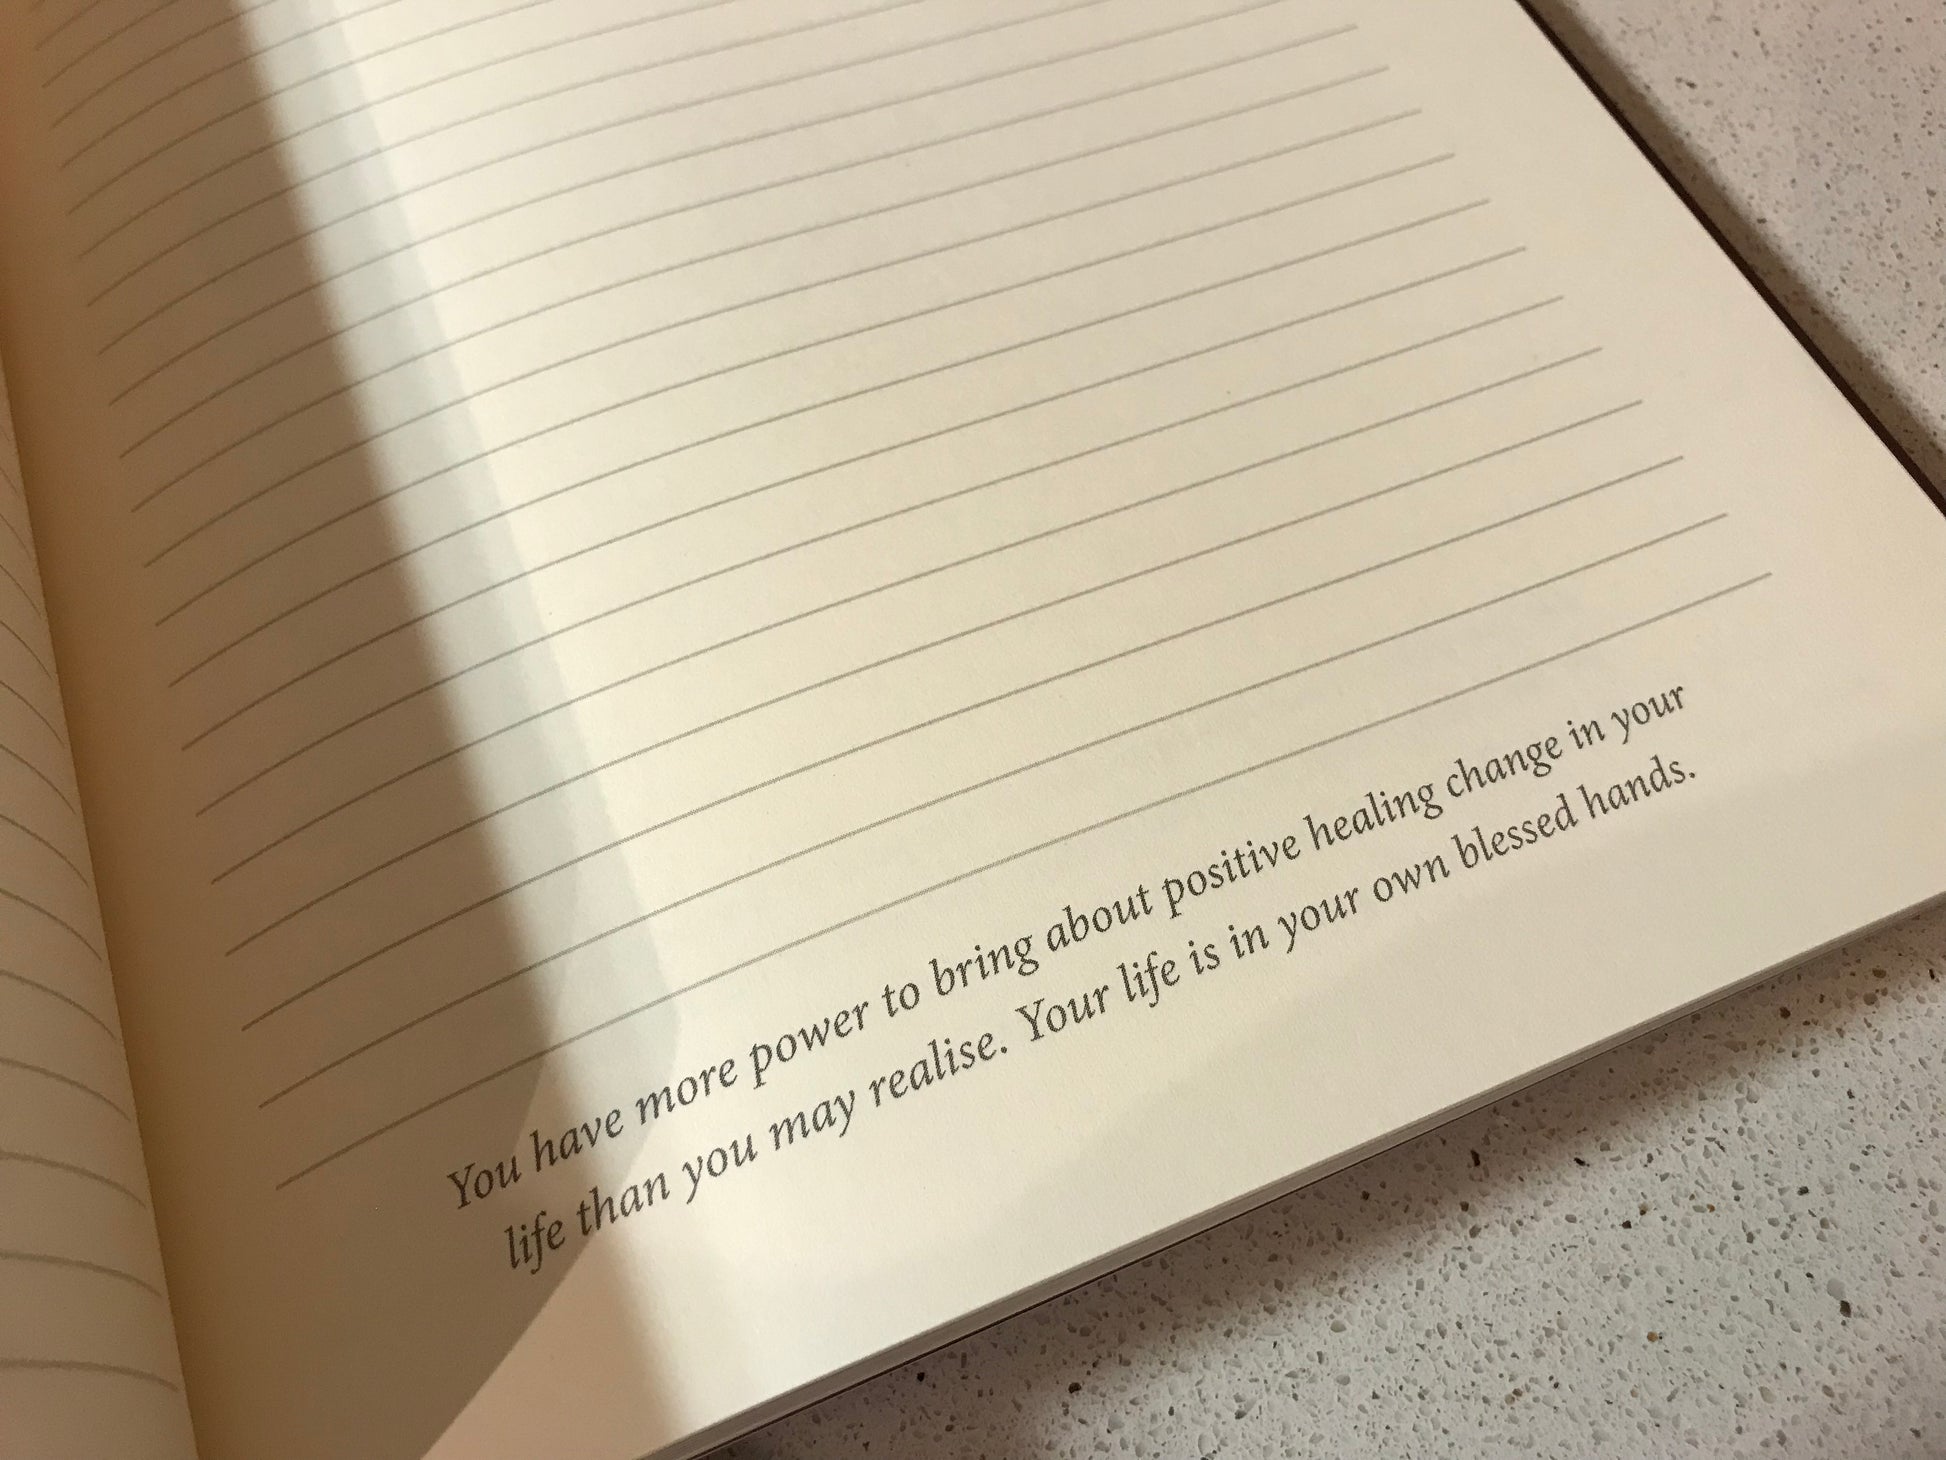 You have more power to bring about positive healing change in your
life than you may realise. Your life is in your own blessed hands.